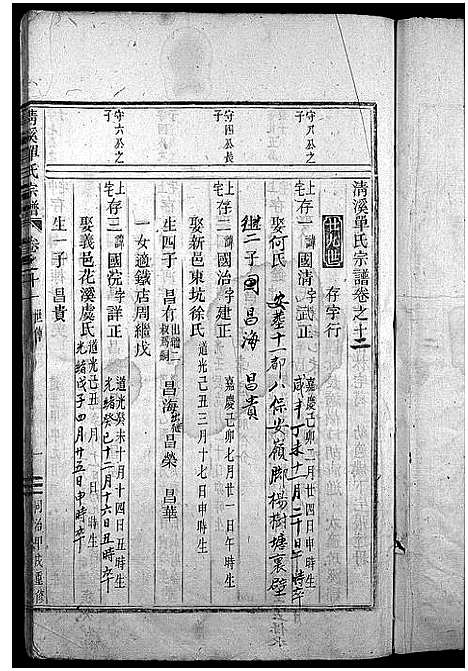 清溪單氏宗譜卷之十二
廿九世
存字行
守八公之子
上宅存一諱國清字武正
嘉慶己卯二月廿四日申時生
咸丰丁未十一月二十日午時卒
娶何氏
安塟十一都八保安嶺脚楊樹塘裏壁
繼二子
昌海
昌貴
守四公長子
上宅存二諱國治字建正
嘉慶己卯七月廿一日午時生
娶新邑東坑徐氏
道光己丑三月十七日申時生
生四子
昌有
出繼二叔為嗣
昌海
出繼
昌榮
昌華
一女適鐵店周繼戊
守六公之子
上宅存三諱國浣字詳正
道光癸未十月十四日丑時生
光緒癸巳十二月十六日丑時卒
娶義邑花溪虞氏
道光己丑
月
日
時生
光緒戊子四月廿五日申時卒
生一子
昌貴
清溪單氏宗譜
卷之十
世傳
一
同治甲戌重修